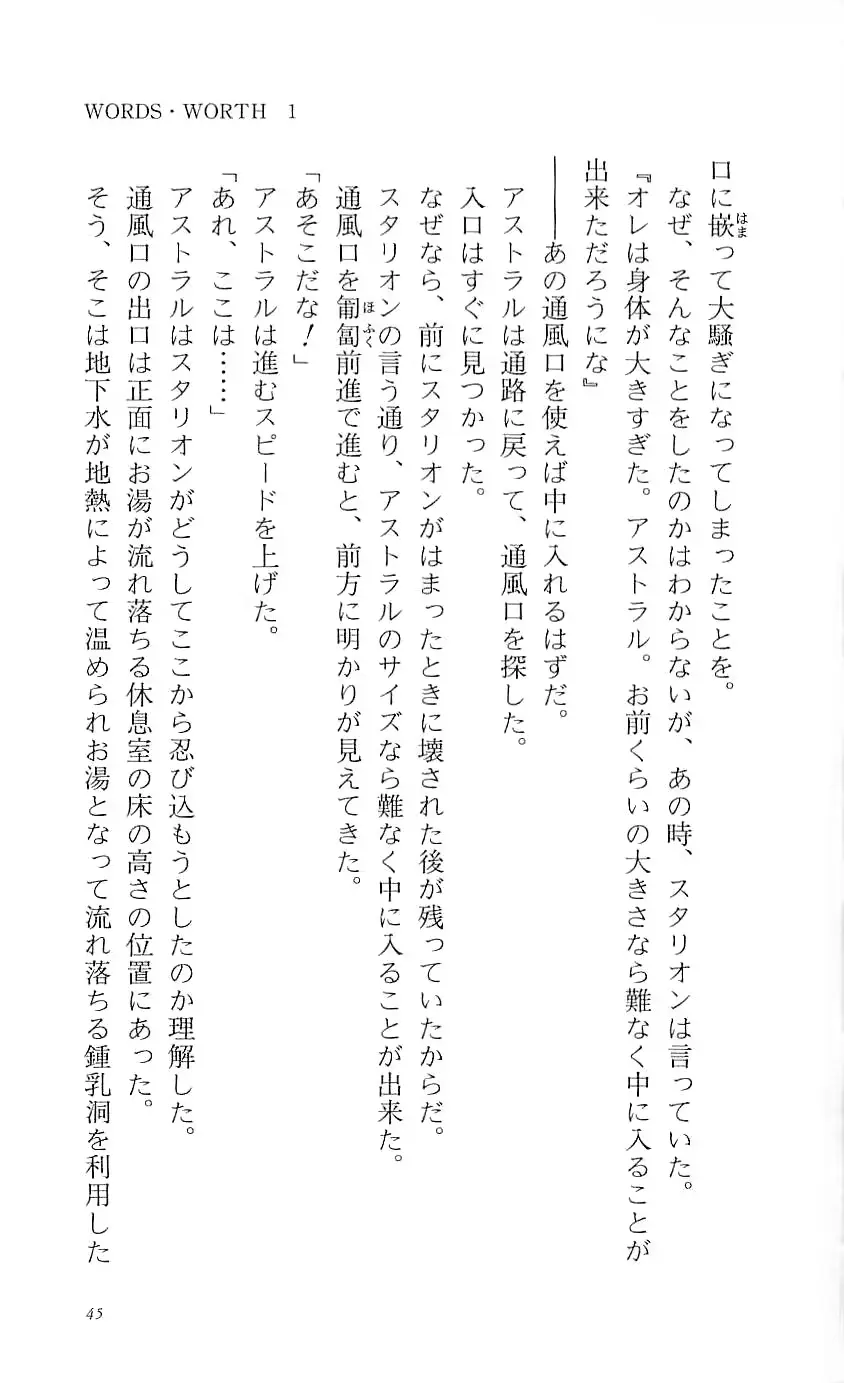 WORDS・WORTH 1
口に嵌って大騒ぎになってしまったことを。
なぜ、そんなことをしたのかはわからないが、あの時、スタリオンは言っていた。
『オレは身体が大きすぎた。アストラル。お前くらいの大きさなら難なく中に入ることが
出来ただろうにな』
――あの通風口を使えば中に入れるはずだ。
アストラルは通路に戻って、通風口を探した。
入口はすぐに見つかった。
なぜなら、前にスタリオンがはまったときに壊された後が残っていたからだ。
スタリオンの言う通り、アストラルのサイズなら難なく中に入ることが出来た。
通風口を匍匐前進で進むと、前方に明かりが見えてきた。
「あそこだな！」
アストラルは進むスピードを上げた。
「あれ、ここは……」
アストラルはスタリオンがどうしてここから忍び込もうとしたのか理解した。
通風口の出口は正面にお湯が流れ落ちる休息室の床の高さの位置にあった。
そう、そこは地下水が地熱によって温められお湯となって流れ落ちる鍾乳洞を利用した
45